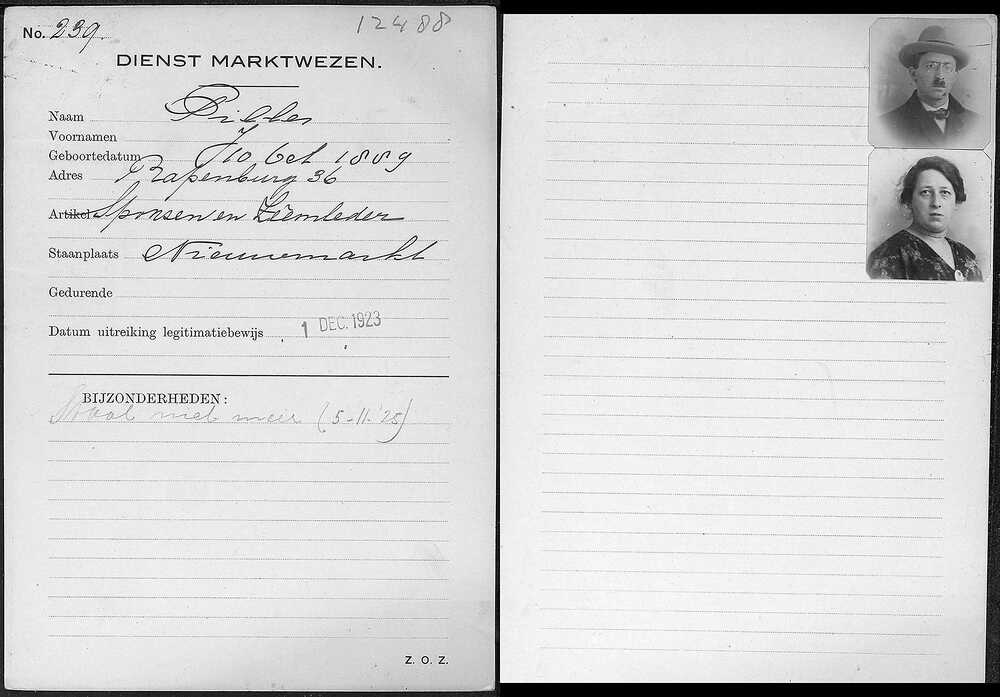 No. 239.
12488
DIENST MARKTWEZEN.
Naam
Voornamen J
Geboortedatum 10 Oct 1889
Adres Rapenburg 36
Artikel Sponsen en Zeemleder
Staanplaats Nieuwemarkt
Gedurende
Datum uitreiking legitimatiebewijs 1 DEC. 1923
BIJZONDERHEDEN:
Staat niet meer (5-11-'25)
Z. O. Z.